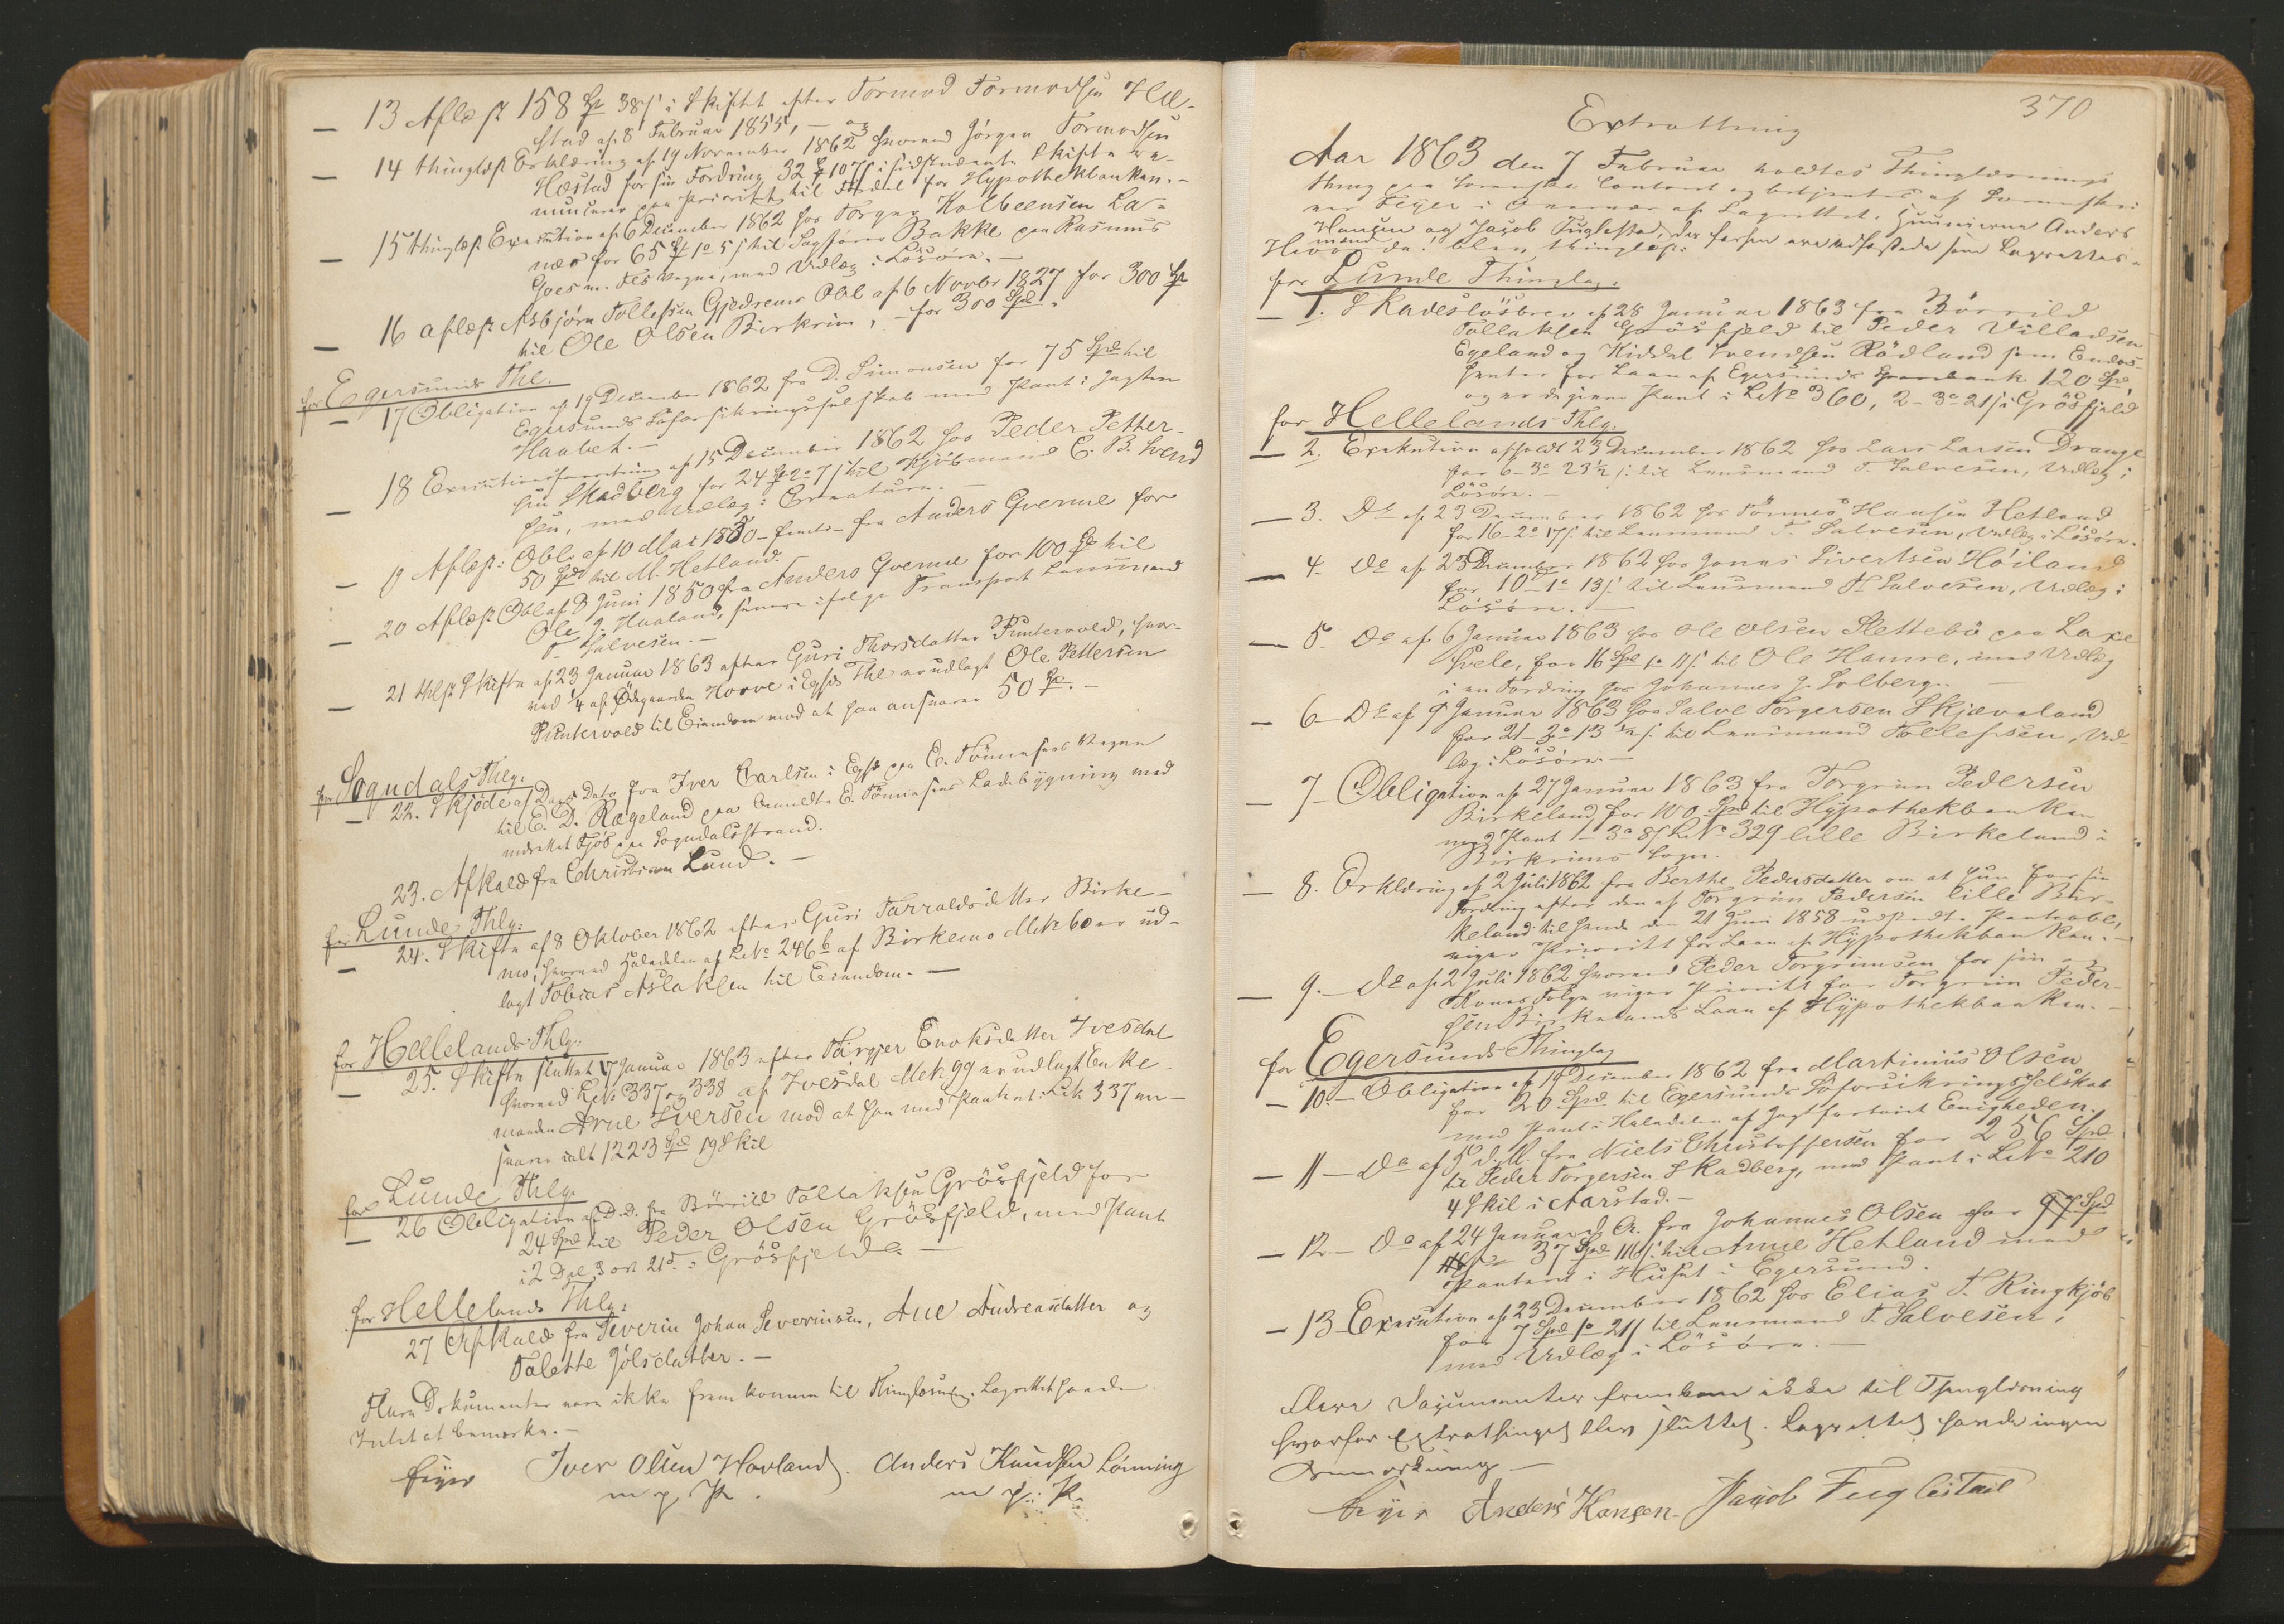 13 Aflæst 158 Spd 38 s i Skiftet efter Tormod Tormodsen Hæ-
stad af 8 Februar 1855, — og
14 thinglæst Erklæring af 19 November 1862 hvorved Jörgen Tormodsen
Hæstad for sin Fordring 32 Spd 107 s i sidstnævnte Skifte re-
nuncerer paa Prioritet til Fordel for Hypothekbanken. —
15 thinglæst Execution af 6 December 1862 hos Torger Kolbeensen La-
næs for 65 Spd 1o 5 s til Sagförer Bakke paa Rasmus
Vegne, med Udlæg i Lösöre. —
16 aflæst Asbjörn Tollefsen Gjedrems Obl af 6 Novbr 1827 for 300 Spd
til Ole Olsen Birkrim, — for 300 Spd.
for Egersunds Thl.
17 Obligation af 19 December 1862 fra D. Simonsen for 75 Spd til
Egersunds Söforsikringsselskab med Pant i Jagten
Haabet. —
18 Executionsforretning af 15 December 1862 hos Peder Petter-
sen Skadberg for 24 Spd 2o 7 s til Kjöbmand C. B. Svend
sen, med Udlæg i Creaturer. —
19 Aflæst: Obl. af 10 Mai 1850 fra Anders Qverme for
50 Spd til M. Hetland.
20 Aflæst Obl af 8 Juni 1850 fra Anders Qverme for 100 Spd til
Ole J. Haaland, senere ifölge Transport Lensmand
T. Salvesen. —
21 thlst Skifte af 23 Januar 1863 efter Guri Thorsdatter Puntervold, hvor-
ved 1/4 af Ödegaarden Hovve i Egsds Thl er udlagt Ole Pettersen
Puntervold til Eiendom mod at han ansvarer 50 Spd. —
for Sogndals Thlg.
22. Skjöde af Dags Dato fra Iver Carlsen i Egsd paa E. Tönnesens Vegne
til E. D. Rægeland paa bemeldte E. Tönnesens Ladebygning med
indrettet Fjös paa Sogndalsstrand.
23. Afkald fra Christian Lund. —
for Lunde Thlg:
24. Skifte af 8 Oktober 1862 efter Guri Tarraldsdatter Birke-
mo, hvorved Halvdelen af LNo 246b af Birkemo Mtk 60 er ud-
lagt Tobias Aslaksen til Eiendom. —
for Hællelands Thlg:
25. Skifte sluttet 17 Januar 1863 efter Börgjer Enoksdatter Ivesdal
hvorved LNo 337 og 338 af Ivesdal Mtk 99 er udlagt Enke-
manden Arne Iversen mod at han med Panteret i LNo 337 an-
svarer ialt 1223 Spd 19 Skil
for Lunde Thlg.
26 Obligation af D.D. fra Börrild Tollaksen Grösfjeld for
24 Spd til Peder Olsen Grösfjeld, med Pant
i 2 Dal 3 ort 21 s. i Grösfjeld. —
for Hellelands Thlg:
27 Afkald fra Severin Johan Severinsen, Ane Andreasdatter og
Talette Jölsdatter. —
Flere Dokumenter vare ikke fremkomne til Thinglæsning. Lagrettet havde
Intet at bemærke. —
Feyer Iver Olsen Hovland. Anders Knudsen Lönning
m. p. P. m. p. P.
370
Extratthing
Aar 1863 den 7 Februar holdtes Thinglæsnings
thing paa Sorenskr. Contoret og betjentes af Sorenskri
ver Feyer i Overvær af Lagrettet: Huuseierne Anders
Hansen og Jacob Fuglestad, der forhen ere edfæstede som Lagrettes-
mænd
Hvorda blev thinglæst:
for Lunde Thinglag:
1. Skadeslösbrev af 28 Januar 1863 fra Börrild
Tollaksen Grösfjeld til Peder Villadsen
Egeland og Kiddel Svendsen Rödland som Endos-
senter for Laan af Egersunds Sparebank 120 Spd,
og er de givne Pant i LNo 360, 2 - 3o 21 s i Grösfjeld
for Hellelands Thlg.
2. Exekution afholdt 23 December 1862 hos Lars Larsen Drange
for 6 - 3o 23 1/2 s til Lensmand T. Salvesen, Udlæg i
Lösöre. —
3. Do af 23 December 1862 hos Tönnes Hansen Hetland
for 16 - 2o 17 s. til Lensmand T. Salvesen, Udlæg i Lösöre.
4. Do af 23 December 1862 hos Jonas Sivertsen Höiland
for 10 - 1o 13 s. til Lensmand T. Salvesen, Udlæg i
Lösöre. —
5. Do af 6 Januar 1863 hos Ole Olsen Slettebö paa Laxe
Svele, for 16 Spd 1o 11 s. til Ole Hamre, med Udlæg
i en Fordring hos Johannes J. Solberg. —
6 Do af 9 Januar 1863 hos Salve Torgersen Skjæveland
for 21 - 2o 13 1/2 s. til Lensmand Tollefsen, Ud-
læg i Lösöre. —
7 Obligation af 27 Januar 1863 fra Torgrim Pedersen
Birkeland, for 100 Spd til Hypothekbanken
med Pant - 3o 8 s. LNo 329 lille Birkeland i
Birkrims Sogn.
8. Erklæring af 2 Juli 1862 fra Berthe Pedersdatter om at hun for sin
Fordring efter den af Torgrim Pedersen lille Bir-
keland til hende den 21 Juni 1858 udstedte Panteobl,
viger Prioritet for Laan af Hypothekbanken. —
9. Do af 2 Juli 1862 hvorved Peder Torgrimsen for sin og
Kones Folge viger Prioritet for Torgrim Peder-
sen Birkelands Laan af Hypothekbanken. —
for Egersunds Thinglag
10. Obligation af 19 December 1862 fra Martinius Olsen
for 20 Spd til Egersunds Söforsikringsselskab
med Pant i Halvdelen af Jagtfartöiet Enigheden.
11 Do af 5 d. M. fra Niels Christoffersen for 256 Spd
til Peder Torgersen Skadberg, med Pant i LNo 210
4 Skil i Aarstad. —
12. Do af 24 Januar d. A. fra Johannes Olsen for 97 Spd
37 Spd 116 s. til Arne Hetland med
Panteret i Huset i Egersund.
13 Execution af 23 December 1862 hos Elias T. Ringkjöb
for 7 Spd 1o 21 s til Lensmand T. Salvesen,
med Udlæg i Lösöre. —
Flere Documenter fremkom ikke til Thinglæsning
hvorfor Extrathinget blev sluttet. Lagrettet havde ingen
Bemærkning —
Feyer Anders Hansen. Jacob Fuglestad